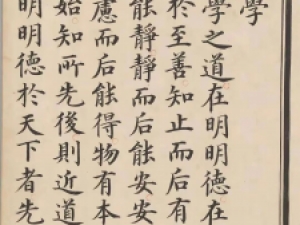 學
學之道在明明德在
於至善知止而后有
能靜靜而后能安安
慮而后能得物有本
始知所先後則近道
明明德於天下者先